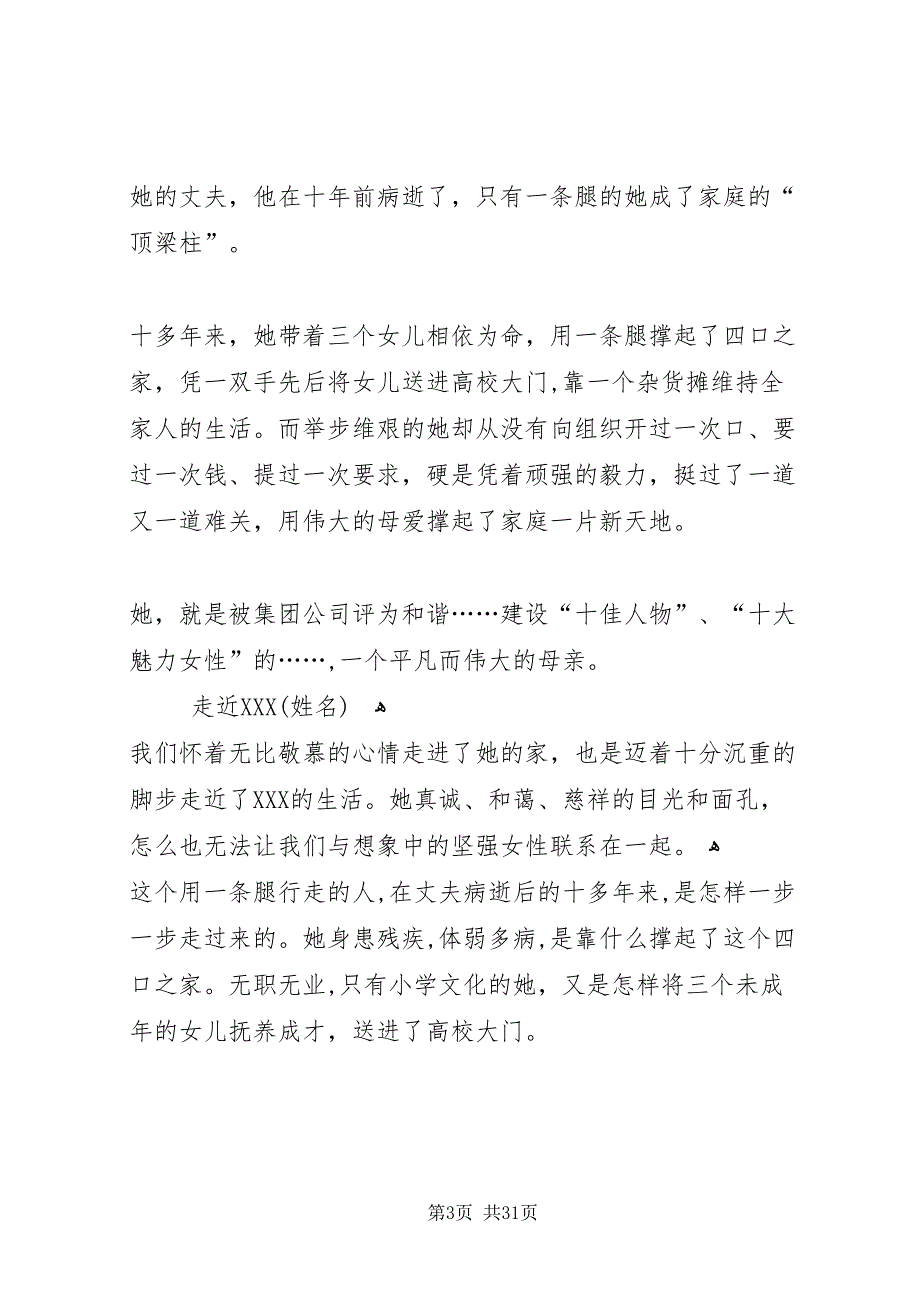 她的丈夫，他在十年前病逝了，只有一条腿的她成了家庭的“
顶梁柱”。
十多年来，她带着三个女儿相依为命，用一条腿撑起了四口之
家，凭一双手先后将女儿送进高校大门,靠一个杂货摊维持全
家人的生活。而举步维艰的她却从没有向组织开过一次口、要
过一次钱、提过一次要求，硬是凭着顽强的毅力，挺过了一道
又一道难关，用伟大的母爱撑起了家庭一片新天地。
她，就是被集团公司评为和谐……建设“十佳人物”、“十大
魅力女性”的……,一个平凡而伟大的母亲。
走近XXX(姓名) ﻫ
我们怀着无比敬慕的心情走进了她的家，也是迈着十分沉重的
脚步走近了XXX的生活。她真诚、和蔼、慈祥的目光和面孔，
怎么也无法让我们与想象中的坚强女性联系在一起。ﻫ
这个用一条腿行走的人,在丈夫病逝后的十多年来,是怎样一步
一步走过来的。她身患残疾,体弱多病,是靠什么撑起了这个四
口之家。无职无业,只有小学文化的她，又是怎样将三个未成
年的女儿抚养成才，送进了高校大门。
第3页 共31页